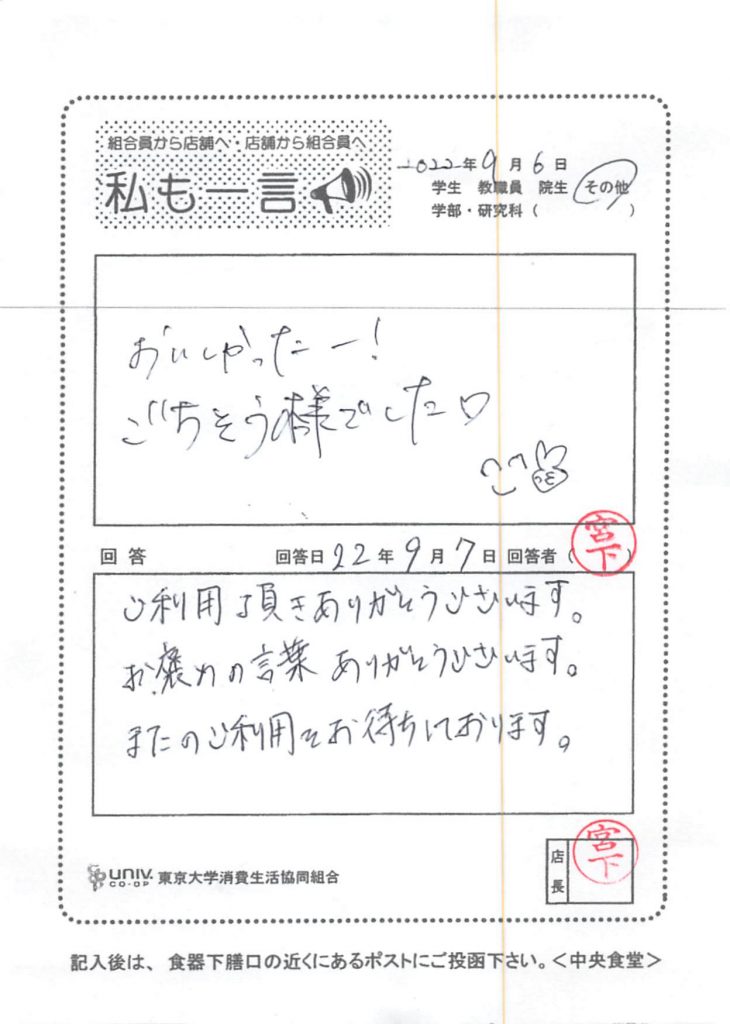 組合員から店舗へ・店舗から組合員へ
私も一言
2022年9月6日
学生 教職員 院生 その他
学部・研究科( )
おいしかったー!
ごちそう様でした♡
回答 回答日 22年9月7日 回答者( 宮下 )
ご利用頂きありがとうございます。
お褒めの言葉ありがとうございます。
またのご利用をお待ちしております。
店長 宮下
UNIV. CO-OP 東京大学消費生活協同組合
記入後は、食器下膳口の近くにあるポストにご投函下さい。<中央食堂>